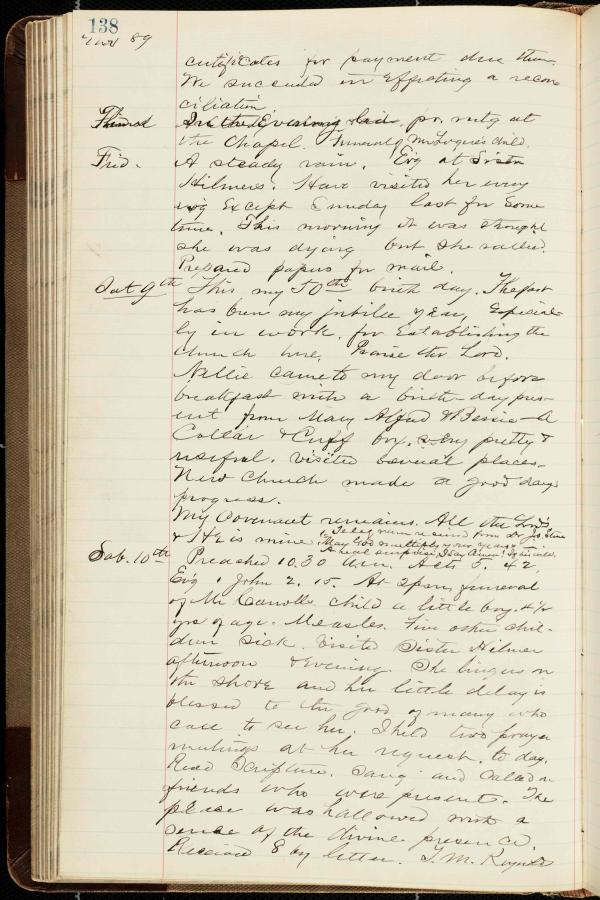 138
Nov 89
certificates for payment due them.
We succeeded in Effecting a recon
ciliation
Thursd In the Evening led pr. mtg at
the Chapel. Funeral of Mr Logue's child.
Frid. A steady rain. Evg at Sister
Hilmers. Have visited her every
evg Except Sunday last for some
time. This morning it was thought
she was dying but she rallied.
Prepared papers for mail.
Sat 9th This my 50th birth day. The past
has been my jubilee year, Especial-
ly in work, for Establishing the
church here, Praise the Lord.
Nellie came to my door before
breakfast with a birth-day pres-
ent from Mary Alfred & Bessie - A
Collar & Cuff box, very pretty &
useful. Visited several places.
New Church made a good days
progress.
My Covenant remains. All the Lord's
& He is mine. Telegram received from Dr Jos.
May God multiply your years
A real surprise. I say Amen!
Sab. 10th Preached 10.30 Am. Acts 5. 42,
Evg 1 John 2. 15. At 2 pm funeral
of Mr Carrolls child a little boy. 4½
yrs of age. Measles. Five other chil-
dren sick. Visited Sister Hilmer
afternoon & Evening. She lingers on
the shore and her little delay is
blessed to the good of many who
call to see her. I held two prayer
meetings at her request, to day.
Read Scripture, Sang and called on
friends who were present. The
place was hallowed with a
sense of the divine presence.
Received 8 by letter. T. M. Reynolds